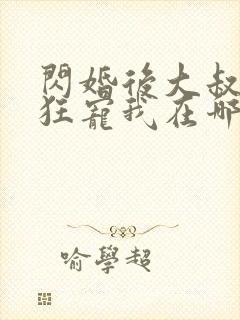 閃婚後大叔
狂寵我在哪
喻學超